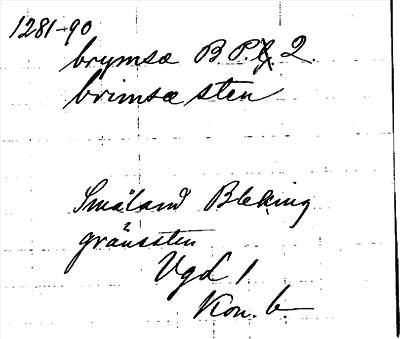 1281-90
brymsæ B P. 2.
brimsæ sten
Småland Bleking
gränssten
Vgd 1
Kon. b.